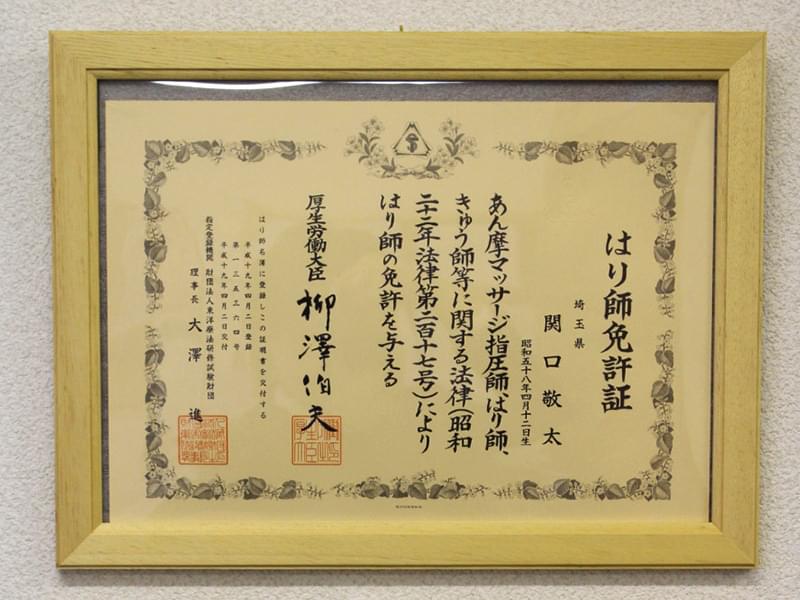 はり師免許証
埼玉県
関口敬太
昭和五十八年四月十二日生
あん摩マッサージ指圧師、はり師、
きゅう師等に関する法律（昭和
二十二年法律第二百十七号）により
はり師の免許を与える
厚生労働大臣 柳澤伯夫
はり師名簿に登録しこの証明書を交付する
平成十九年四月二日登録
第一三五三六四号
平成十九年四月二日交付
指定登録機関 財団法人東洋療法研修試験財団
理事長 大澤進